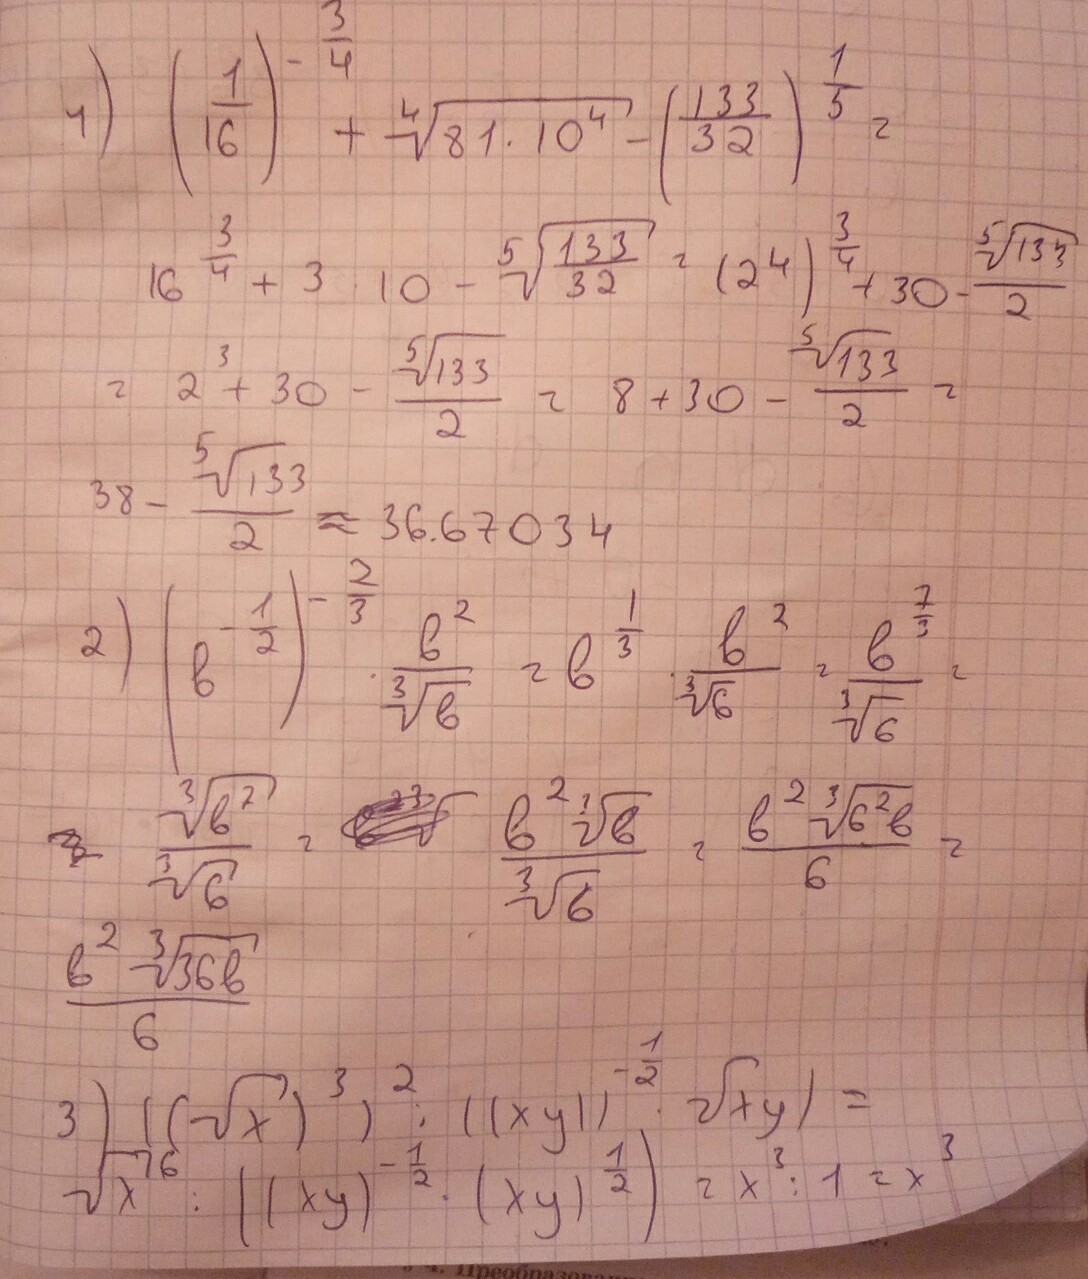 1) (1/16)^(-3/4) + ⁴√(81·10⁴) - (133/32)^(1/5) =
16^(3/4) + 3·10 - ⁵√(133/32) = (2⁴)^(3/4) + 30 - ⁵√133/2
= 2³ + 30 - ⁵√133/2 = 8 + 30 - ⁵√133/2 =
38 - ⁵√133/2 ≈ 36.67034
2) (b^(-1/2))^(-2/3) · b²/³√b = b^(1/3) · b²/³√6 = b^(7/3)/³√6 =
³√b⁷/³√6 = b² ³√b/³√6 = b² ³√(6²b)/6 =
b² ³√(36b)/6
3) ((√x)³)² : ((xy))^(-1/2) · √xy) =
√x⁶ : ((xy)^(-1/2) · (xy)^(1/2)) = x³ : 1 = x³